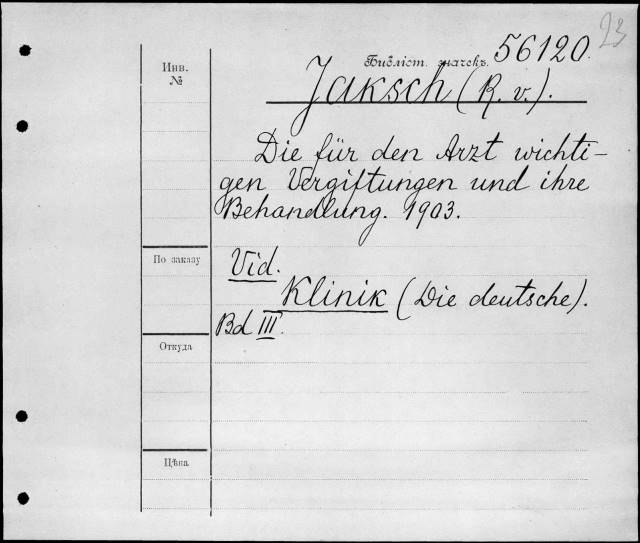 23
Инв.
№
Библіот. значекъ. 56120.
Jaksch (R. v.).
Die für den Arzt wichti-
gen Vergiftungen und ihre
Behandlung. 1903.
По заказу
Vid.
Klinik (Die deutsche).
Bd III.
Откуда
Цѣна